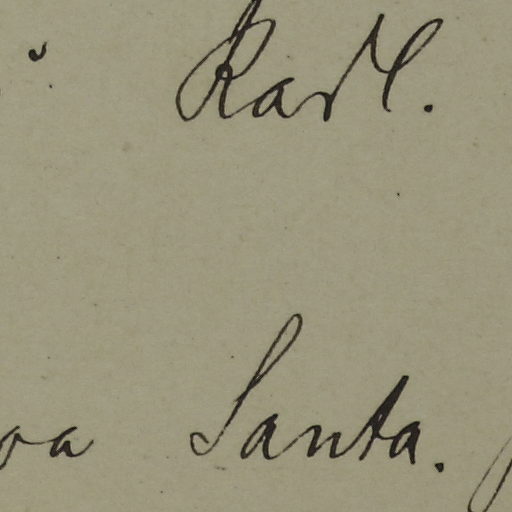 Karl.
Santa.